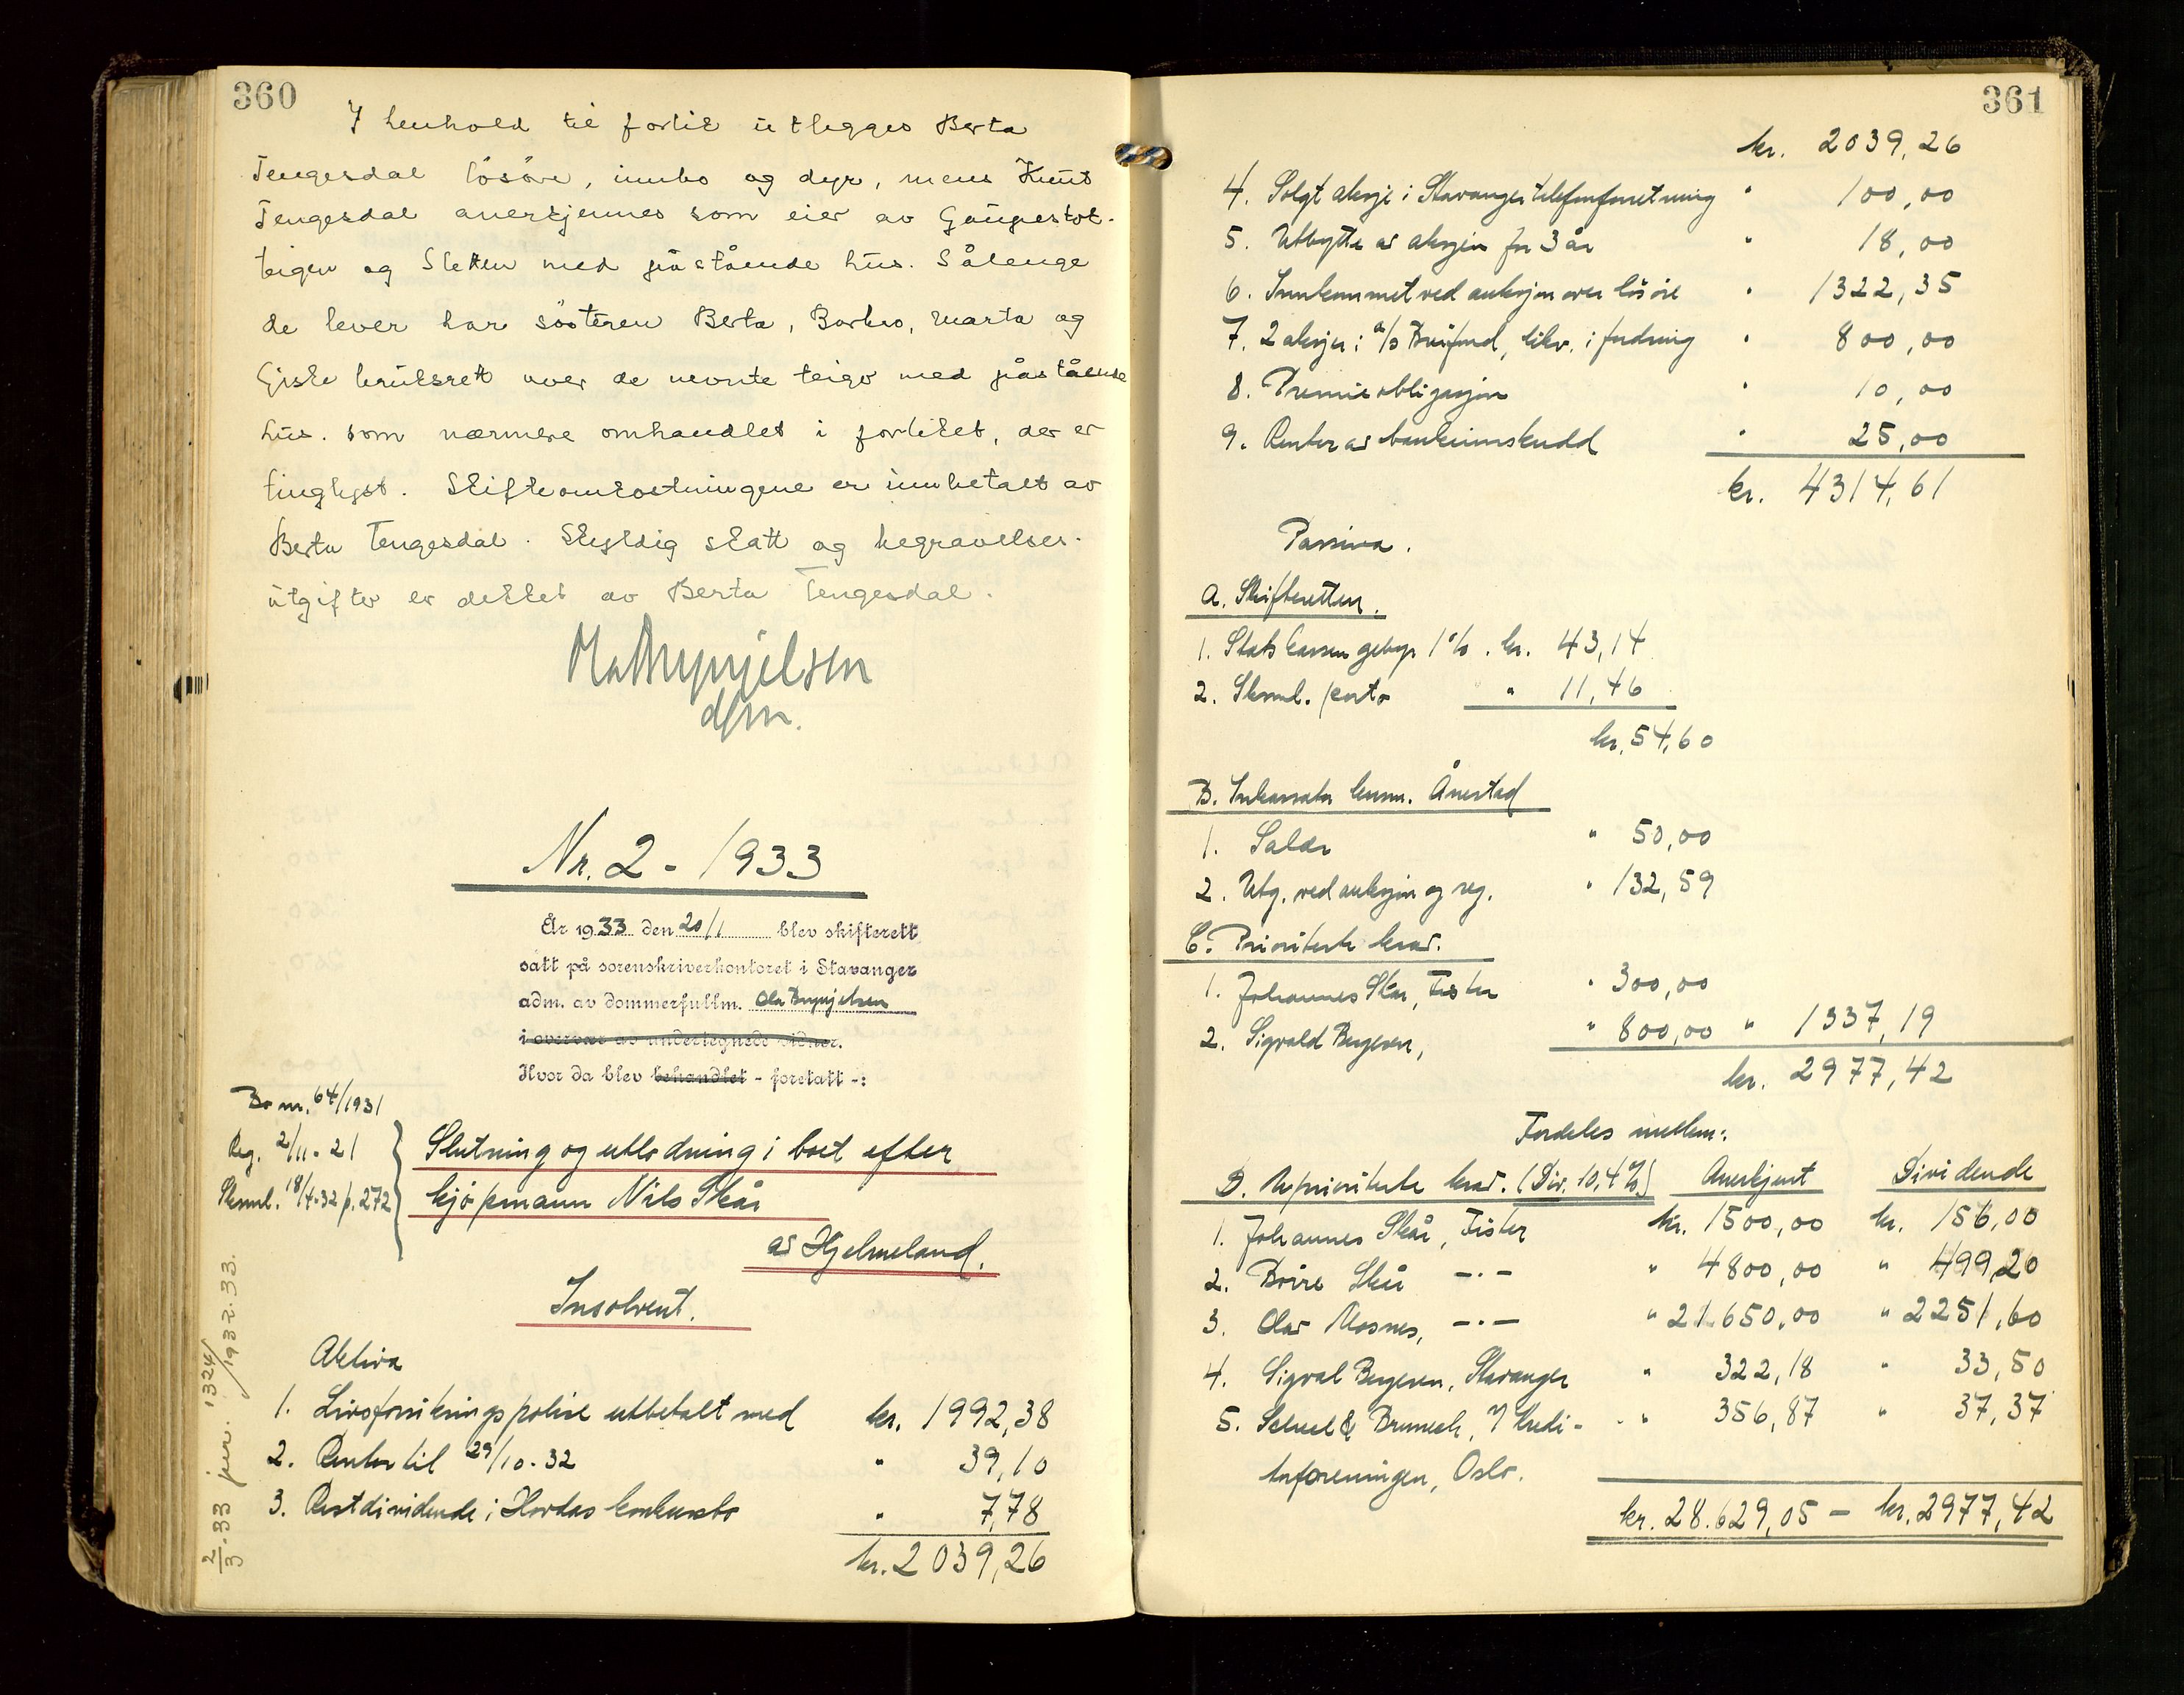 360
I henhold til forlik utlegges Berta
Tengesdal lösöre, innbo og dyr, mens Knut
Tengesdal anerkjennes som eier av Gaupestol-
teigen og Sletten med påstående hus. Sålenge
de lever har søstrene Berta, Barbro, Marta og
Giske bruksrett over de nevnte teiger med påstående
hus. som nærmere omhandlet i forliket, der er
tinglyst. Skifteomkostningene er innbetalt av
Berta Tengesdal. Skyldig skatt og begravelses-
utgifter er dekket av Berta Tengesdal.
Ola Brynjelsen
dfm.
Nr. 2 - 1933
År 1933 den 20/1 blev skifterett
satt på sorenskriverkontoret i Stavanger
adm. av dommerfullm. Ola Brynjelsen
i overvær av undertegnede vidner.
Hvor da blev behandlet - foretatt -:
Bo nr. 64/1931
Reg. 2/11-31
Skmml. 18/4-32 p. 272
Slutning og utlodning i boet efter
kjøpmann Nils Skår
av Hjelmeland.
Insolvent.
2/3.33 jnr. 1324/1932.33.
Aktiva
1. Livsforsikringspolise utbetalt med kr. 1992,38
2. Renter til 29/10-32 " 39,10
3. Restdividende i Hordas konkursbo " 7,78
kr. 2039,26
361
kr. 2039,26
4. Solgt aksje i Stavanger telefonforretning " 100,00
5. Utbytte av aksjen for 3 år " 18,00
6. Innkommet ved auksjon over lösöre " 1322,35
7. 2 aksjer i a/s Buifjord, likv. i fordring " 800,00
8. Premieobligasjon " 10,00
9. Renter av bankinnskudd " 25,00
kr. 4314,61
Passiva.
A. Skifteretten.
1. Statskassen gebyr 1% . kr. 43,14
2. Skmml. porto " 11,46
kr. 54,60
B. Inkassator lensm. Ånestad
1. Salær " 50,00
2. Utg. ved auksjon og reg. " 132,59
C. Prioriterte krav.
1. Johannes Skår, Fister " 300,00
2. Sigvald Bergesen, " 800,00 " 1337,19
kr. 2977,42
Fordeles mellem:
D. Uprioriterte krav. (Div. 10,4%) Anerkjent Dividende
1. Johannes Skår, Fister kr. 1500,00 kr. 156,00
2. Boire Skår -"- " 4800,00 " 499,20
3. Olav Mosnes, -"- " 21.650,00 " 2251,60
4. Sigval Bergesen, Stavanger " 322,18 " 33,50
5. Scheel & Brunech, v/ Kredi- " 356,87 " 37,37
torforeningen, Oslo.
kr. 28.629,05 - kr. 2977,42